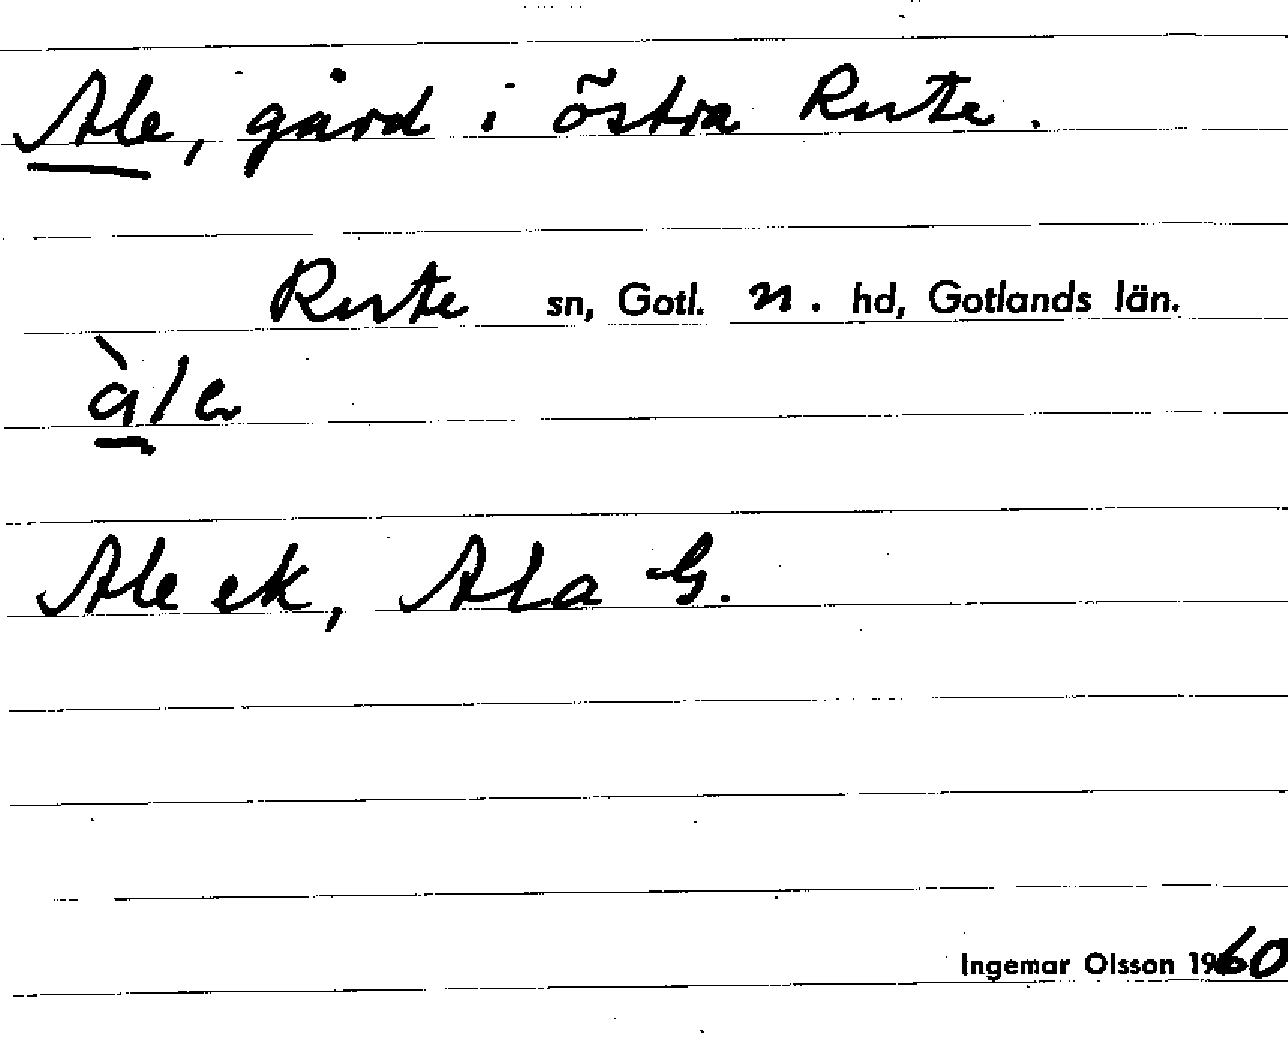 Ale, gård i östra Rute.
Rute sn, Gotl. n. hd, Gotlands län.
àle
Ale ek, Ala G.
Ingemar Olsson 1960